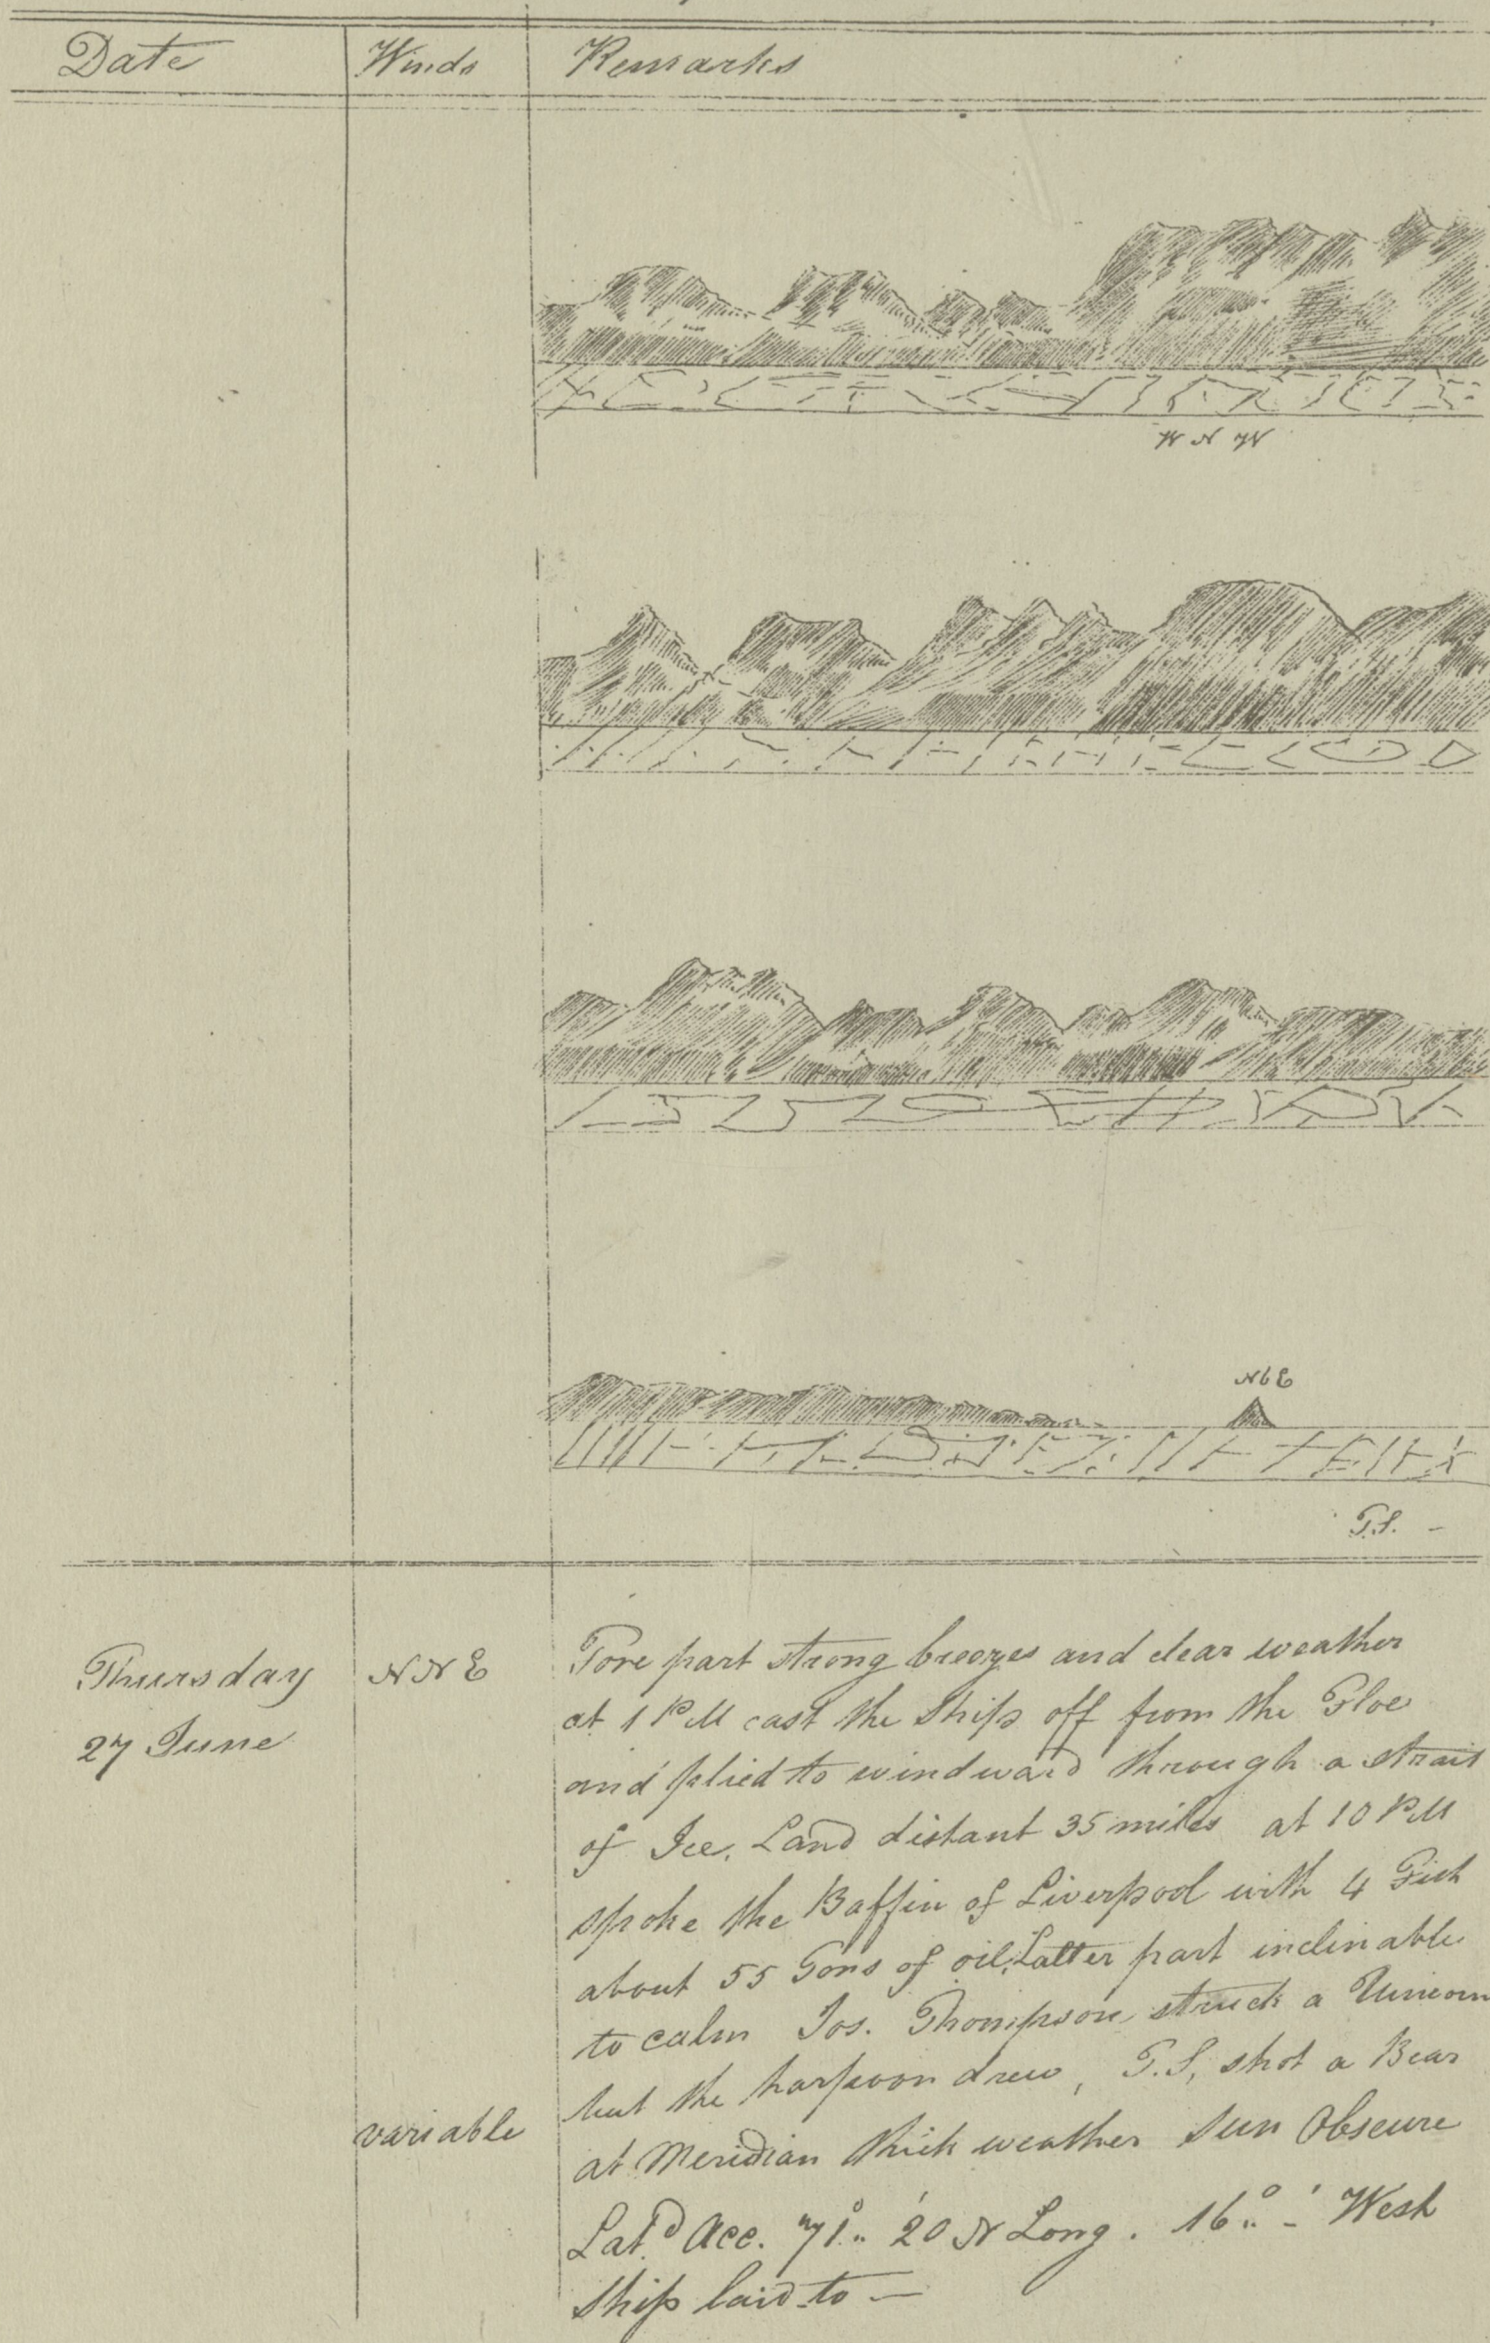 Date Winds Remarks
W N W
N b E
T.S. -
Thursday NNE Fore part strong breezes and clear weather
27 June at 1 PM cast the Ship off from the Floe
and plied to windward through a strait
of Ice. Land distant 35 miles at 10 PM
spoke the Baffin of Liverpool with 4 Fish
about 55 Tons of oil, Latter part inclinable
to calm Jos. Thompson struck a Unicorn
but the harpoon drew, T.S, shot a Bear
variable at Meridian thick weather Sun Obscure
Latd Acc. 71°.. 20' N Long. 16°.. -' West
Ship laid to —